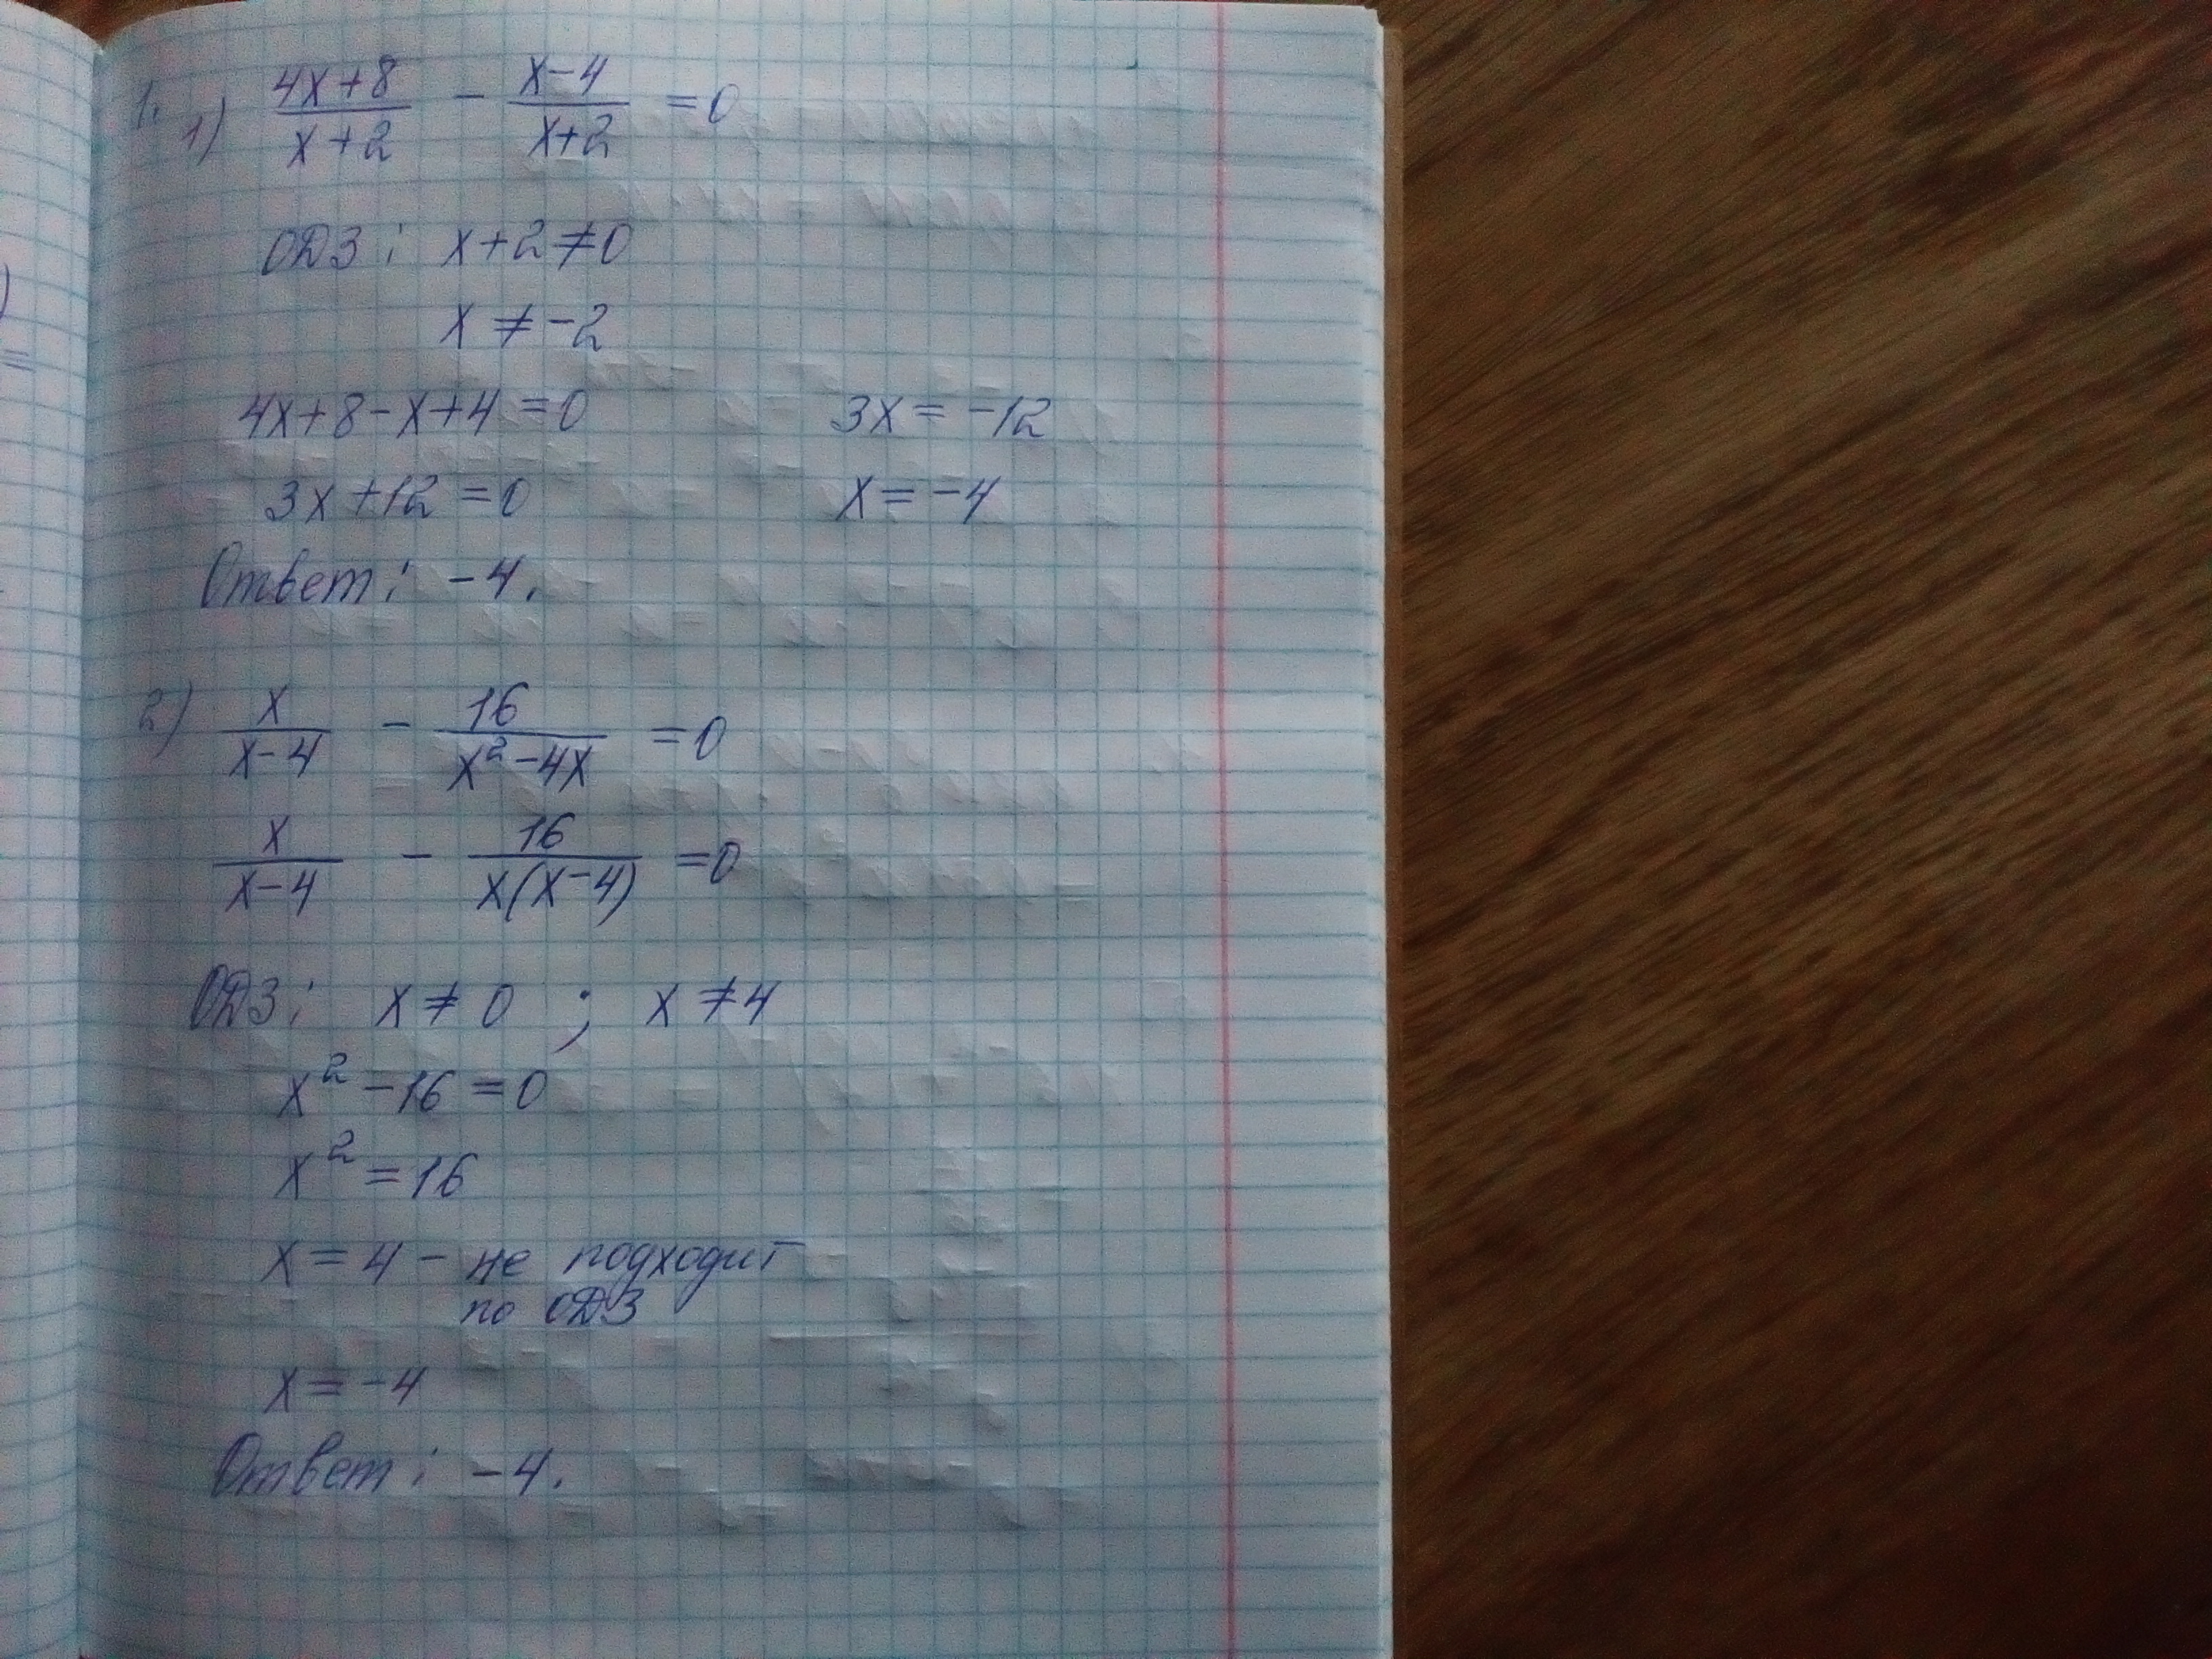 1. 1) (4x+8)/(x+2) - (x-4)/(x+2) = 0
ОДЗ: x+2≠0
x ≠ -2
4x+8-x+4=0 3x = -12
3x+12=0 x = -4
Ответ: -4.
2) x/(x-4) - 16/(x²-4x) = 0
x/(x-4) - 16/(x(x-4)) = 0
ОДЗ: x ≠ 0 ; x ≠ 4
x² - 16 = 0
x² = 16
x = 4 - не подходит
по ОДЗ
x = -4
Ответ: -4.
)
=